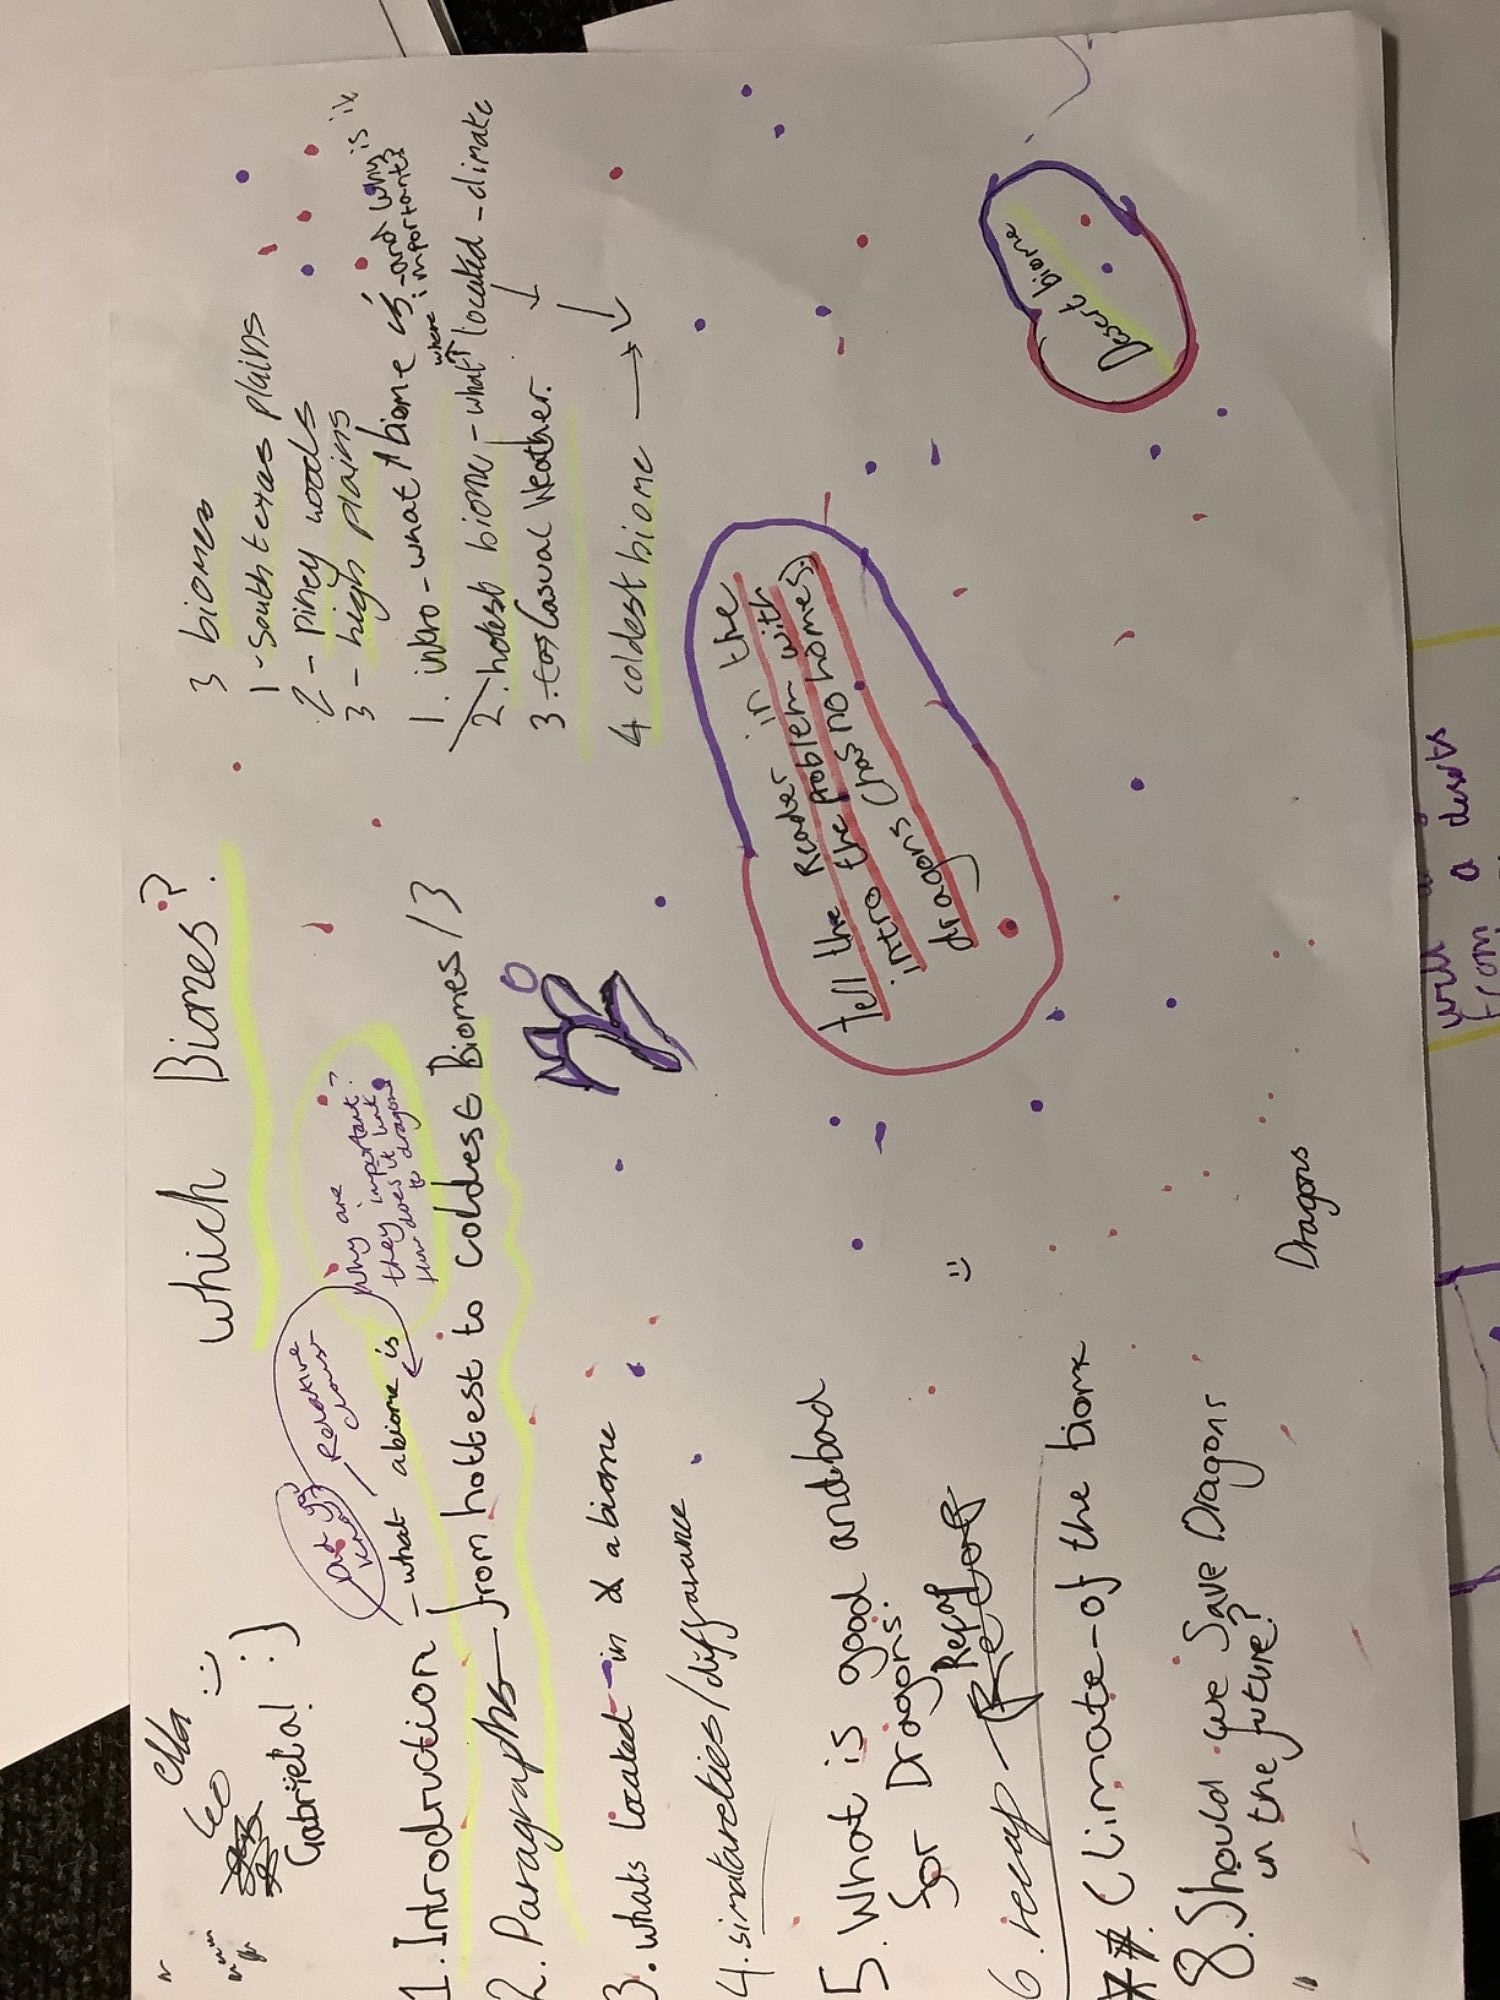 Ella
Leo
Gabriela! :)
which Biomes?
Did you know
Relative clause
why are
they important.
How does it link
to dragons
1. Introdruction - what a biome is
2. Paragraphs - from hottest to coldest Biomes / 3
3. whats located - in a biome
4. simalareties/differance
5. What is good and bad
for Dragons.
6. recap - Recap
7. Climate - of the biome
8. Should we Save Dragons
in the future?
3 biomes
1 - South texas plains
2 - Piney woods
3 - high plains
1. intro - what biome is - and why is it
where important?
2. hotest biome - what located - climate
3 Casual Weather.
4 coldest biome
Tell the Reader in the
intro the problem with
dragons (has no homes).
Desert biome
Dragons
will
a deserts
from